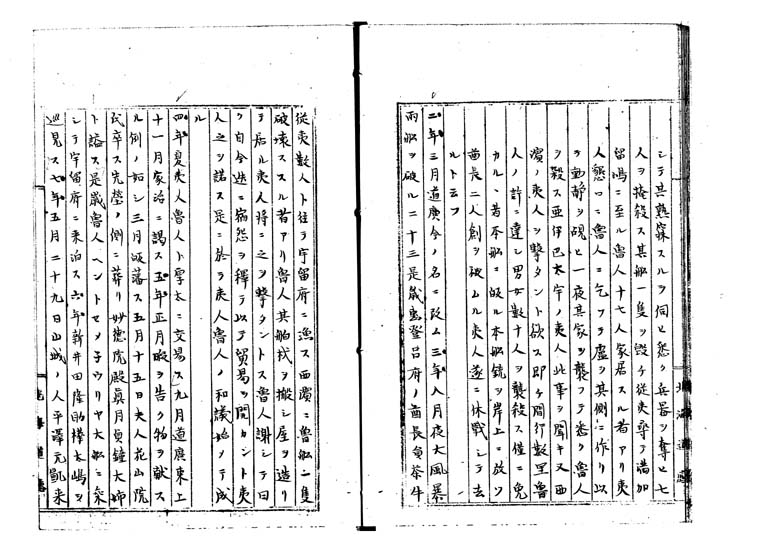 シテ其熟寐スルヲ伺ヒ悉ク兵器ヲ奪ヒ七
人ヲ掩殺ス其船一隻ヲ毀チ従夷尋テ諸加
留嶋ニ至ル魯人十七人家居スル者アリ夷
人懇ロニ魯人ニ乞フテ廬ヲ其側ニ作リ以
テ動静ヲ覘ヒ一夜其家ヲ襲フテ悉ク魯人
ヲ殺ス亜伊巴太宇ノ夷人此事ヲ聞キ又西
濱ノ夷人ヲ撃タント欲ス即チ間行数里魯
人ノ計ニ違ヒ男女数十人ヲ襲殺ス僅ニ免
カル丶者本船ニ皈ル本船銃ヲ岸上ニ放ツ
酋長二人創ヲ被ムル夷人遂ニ休戦シテ去
ルト云フ
二年三月道廣今ノ名ニ改ム三年八月夜大風暴
雨船ヲ破ル二十三是歳惠登呂府ノ酋長貪茶牛
従夷数人ト往テ宇留府ニ漁ス西濱ニ魯船二隻
破壊ススル者アリ魯人其舶材ヲ搬シ屋ヲ造リ
テ居ル夷人将ニ之ヲ撃タントス魯人謝シテ曰
ク自今迭ニ宿怨ヲ釋テ以テ貿易ヲ開カント夷
人之ヲ諾ス是ニ於テ夷人魯人ノ和議始メテ成
ル
四年夏夷人魯人ト厚太ニ交易ス九月道廣東上
十一月家治ニ謁ス五年正月暇ヲ告ク物ヲ献ス
ル例ノ如シ三月皈藩ス五月十五日夫人花山院
氏卒ス先塋ノ側ニ葬リ妙德院殿眞月貞鐘大姉
ト諡ス是歳魯人ヘントセメ子ウリヤ大船ニ乗
シテ宇留府ニ来泊ス六年新井田隆助樺太嶋ヲ
巡見ス七年五月二十九日山城ノ人平澤元凱来